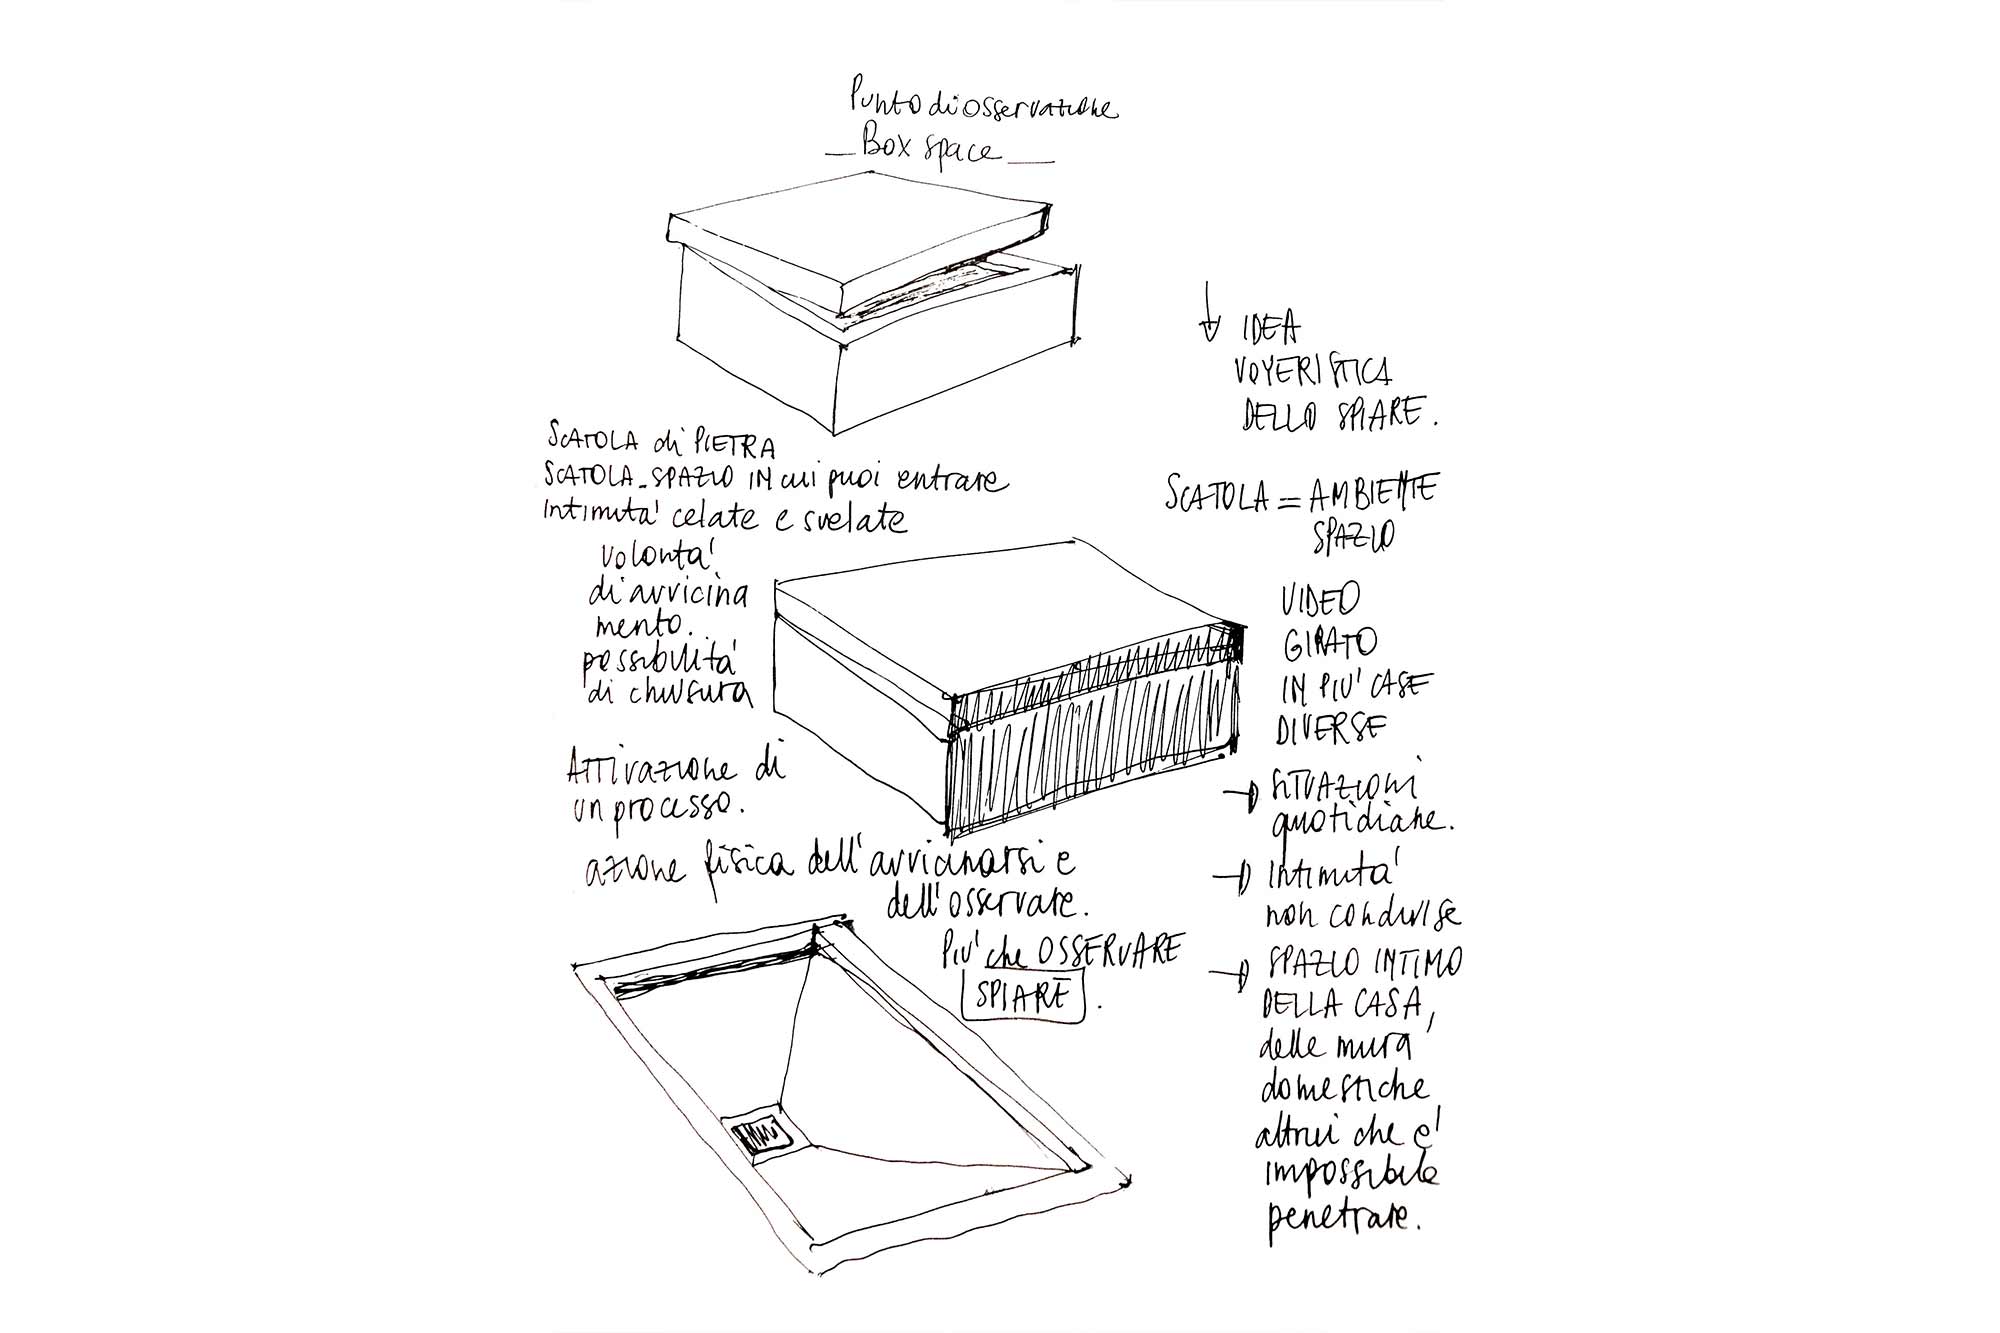 Punto di osservazione
_ Box space _
↓ IDEA
VOYERISTICA
DELLO SPIARE.
SCATOLA di PIETRA
SCATOLA_SPAZIO IN cui puoi entrare
intimita' celate e svelate
volonta'
di avvicina
mento.
possibilita'
di chiusura
Attivazione di
un processo.
azione fisica dell'avvicinarsi e
dell'osservare.
PIU' che OSSERVARE
SPIARE.
SCATOLA = AMBIENTE
SPAZIO
VIDEO
GIRATO
IN PIU' CASE
DIVERSE
→ SITUAZIONI
quotidiane.
→ Intimita'
non condivise
→ SPAZIO INTIMO
DELLA CASA,
delle mura
domestiche
altrui che e'
impossibile
penetrare.